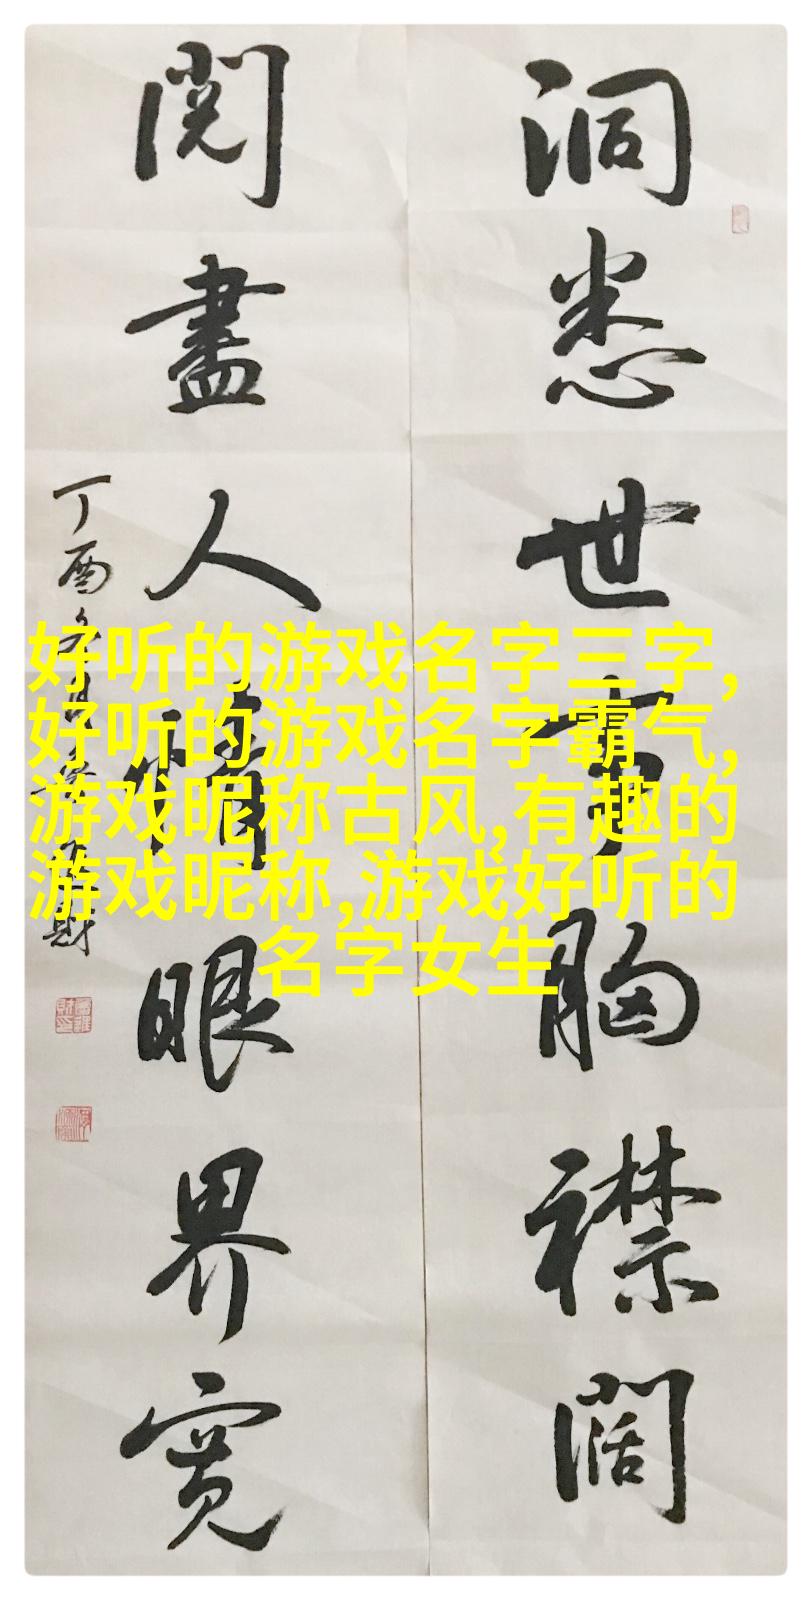 洞悉世事胸襟阔
閱盡人情眼界寬
丁酉
好听的游戏名字三字,
好听的游戏名字霸气,
游戏昵称古风,有趣的
游戏昵称,游戏好听的
名字女生